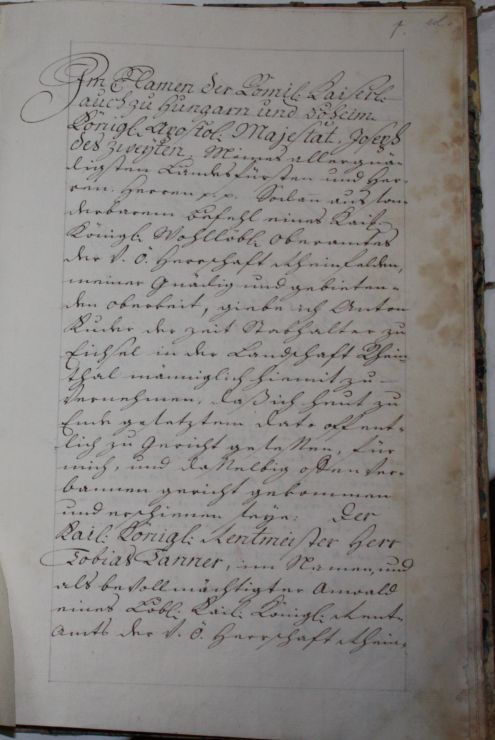 1.
Im Namen der Römil: Kaiserl:
auch zu Hungarn und Böheim
Königl: Apostol: Majestät, Joseph
des zweyten Meines allergnä-
digsten Landsfürsten und Her-
ren Herren p. p. Sodan aus son-
derbarem Befehl eines Kais:
Königl: Wohllöbl: Oberamtes
der V. Ö. Herrschaft Rheinfelden,
meiner Gnädig und gebieten-
den Oberkeit, giebe ich Anton
Ruder der zeit Stabhalter zu
Eichsel in der Landschaft Rhein-
thal männiglich hiemit zu
vernehmen, daß ich heut zu
Ende gesetztem Dato offent-
lich zu Gericht gesessen, für
mich, und dasselbig offen ver-
bannen gericht gekommen
und erschienen seye: Der
Kail: Königl: Rentmeister Herr
Tobias Tanner, im Namen, und
als bevollmächtigter Anwald
eines Löbl: Kail: Königl: Rent-
Amts der V. Ö. Herrschaft Rhein-